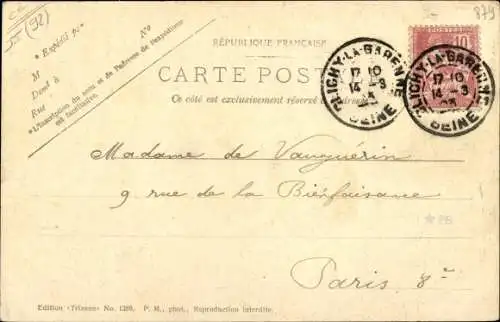 55 (92)
879
* Expédié par N°
M
Demt à
Rue
*L'inscription du nom et de l'adresse de l'expéditeur
est facultative.
RÉPUBLIQUE FRANÇAISE
CARTE POST
Ce côté est exclusivement réservé
CLICHY-LA-GARENNE
17 10
14 -3
03
SEINE
POSTES
10
CLICHY-LA-GARENNE
17 10
14 -3
03
SEINE
Madame de Vauguérin
9 rue de la Bienfaisance
Paris 8e
Edition «Trianon» No. 1289. P. M., phot., Reproduction interdite.